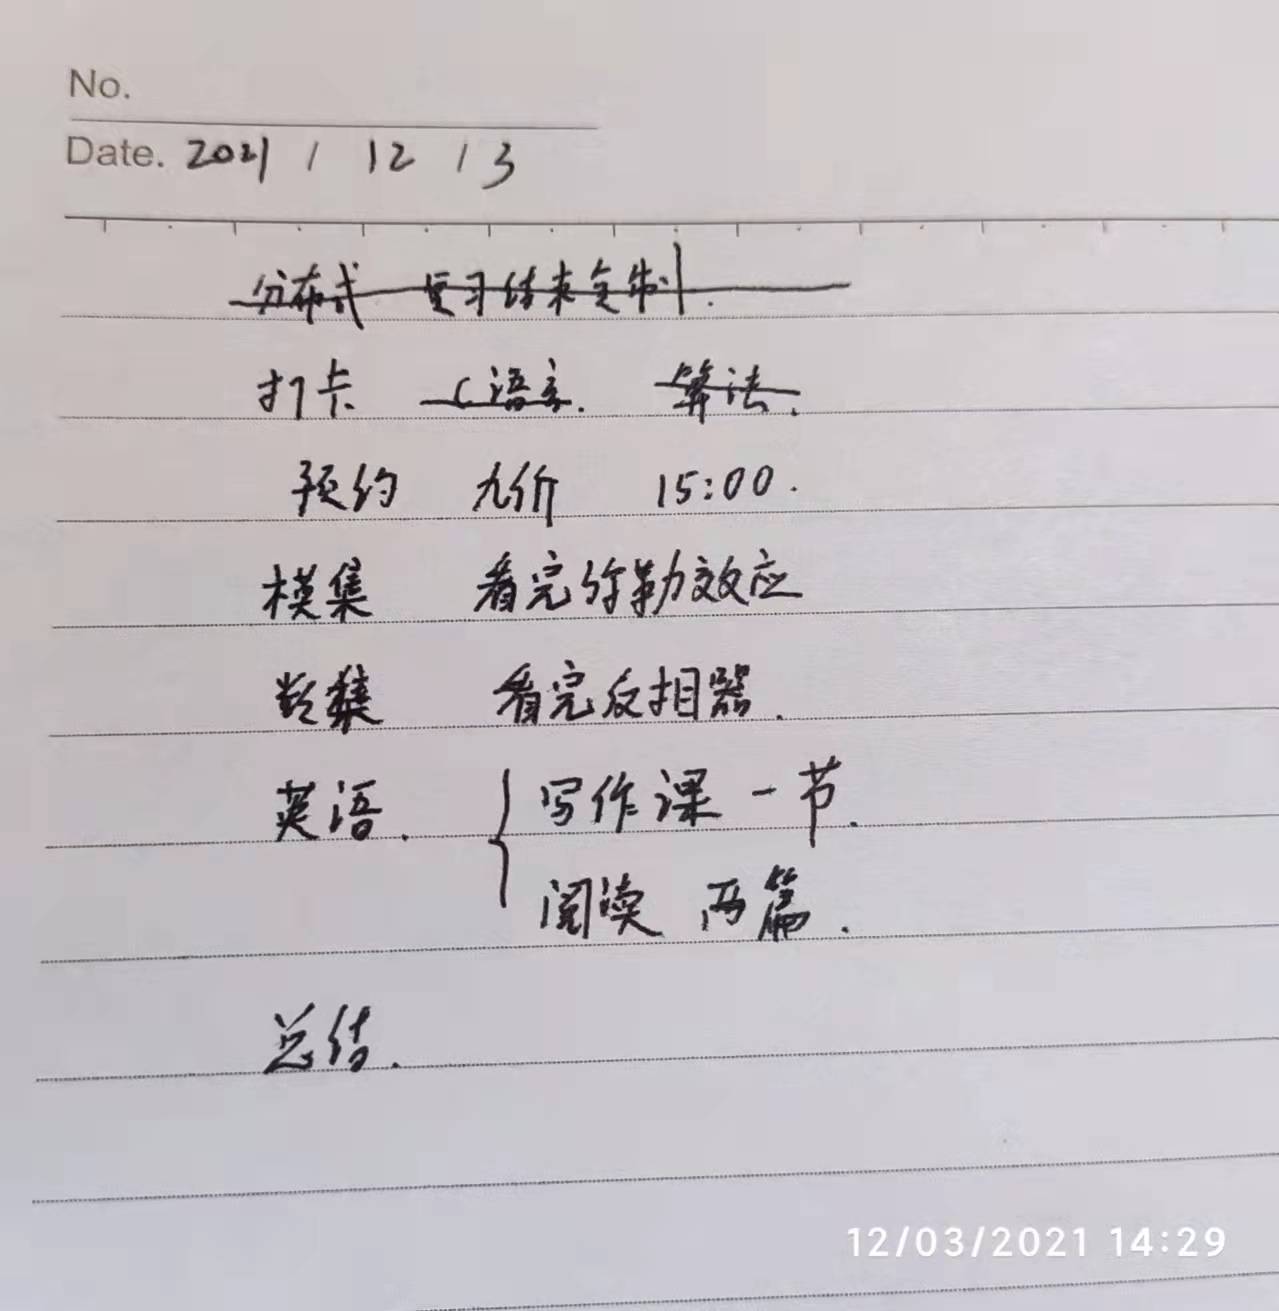 No.
Date. 2021 / 12 / 3
分布式 复习结束复制.
打卡 C语言. 算法.
预约 九价 15:00.
模集 看完弥勒效应
数集 看完反相器.
英语. 写作课一节.
阅读 两篇.
总结.
12/03/2021 14:29